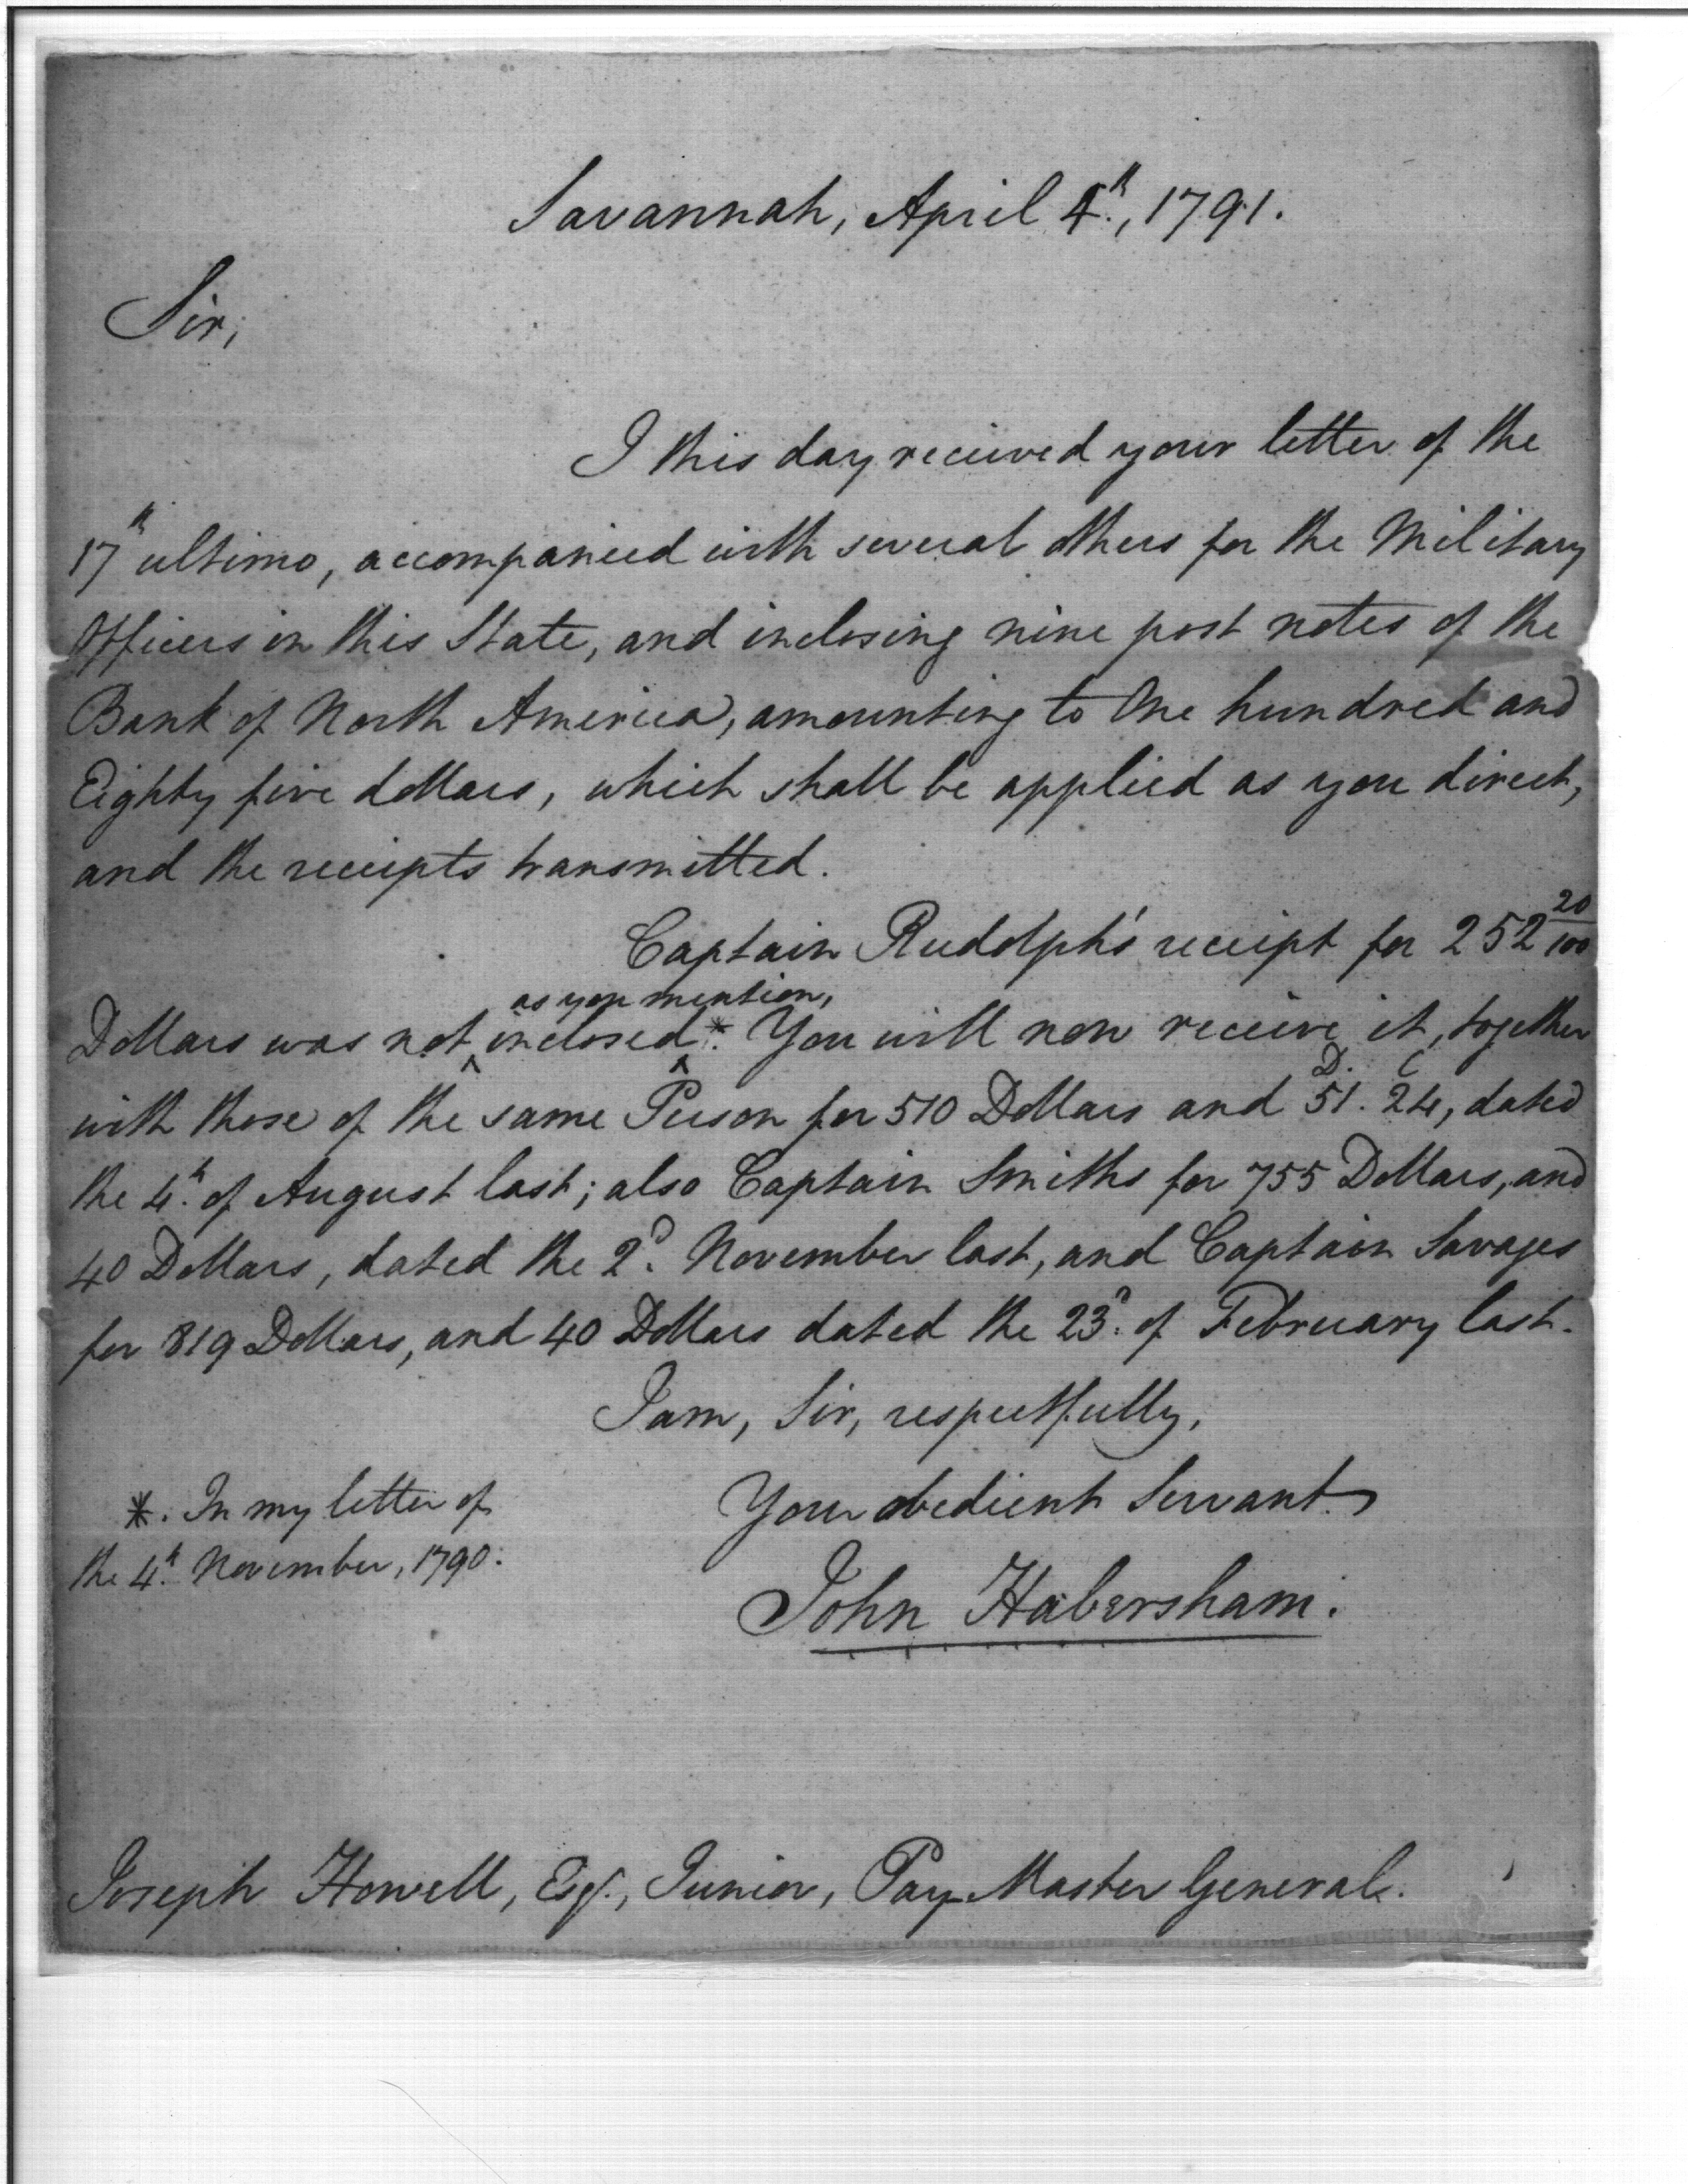 Savannah, April 4th, 1791.
Sir,
I this day received your letter of the
17th ultimo, accompanied with several others for the Military
Officers in this State, and inclosing nine post notes of the
Bank of North America, amounting to One hundred and
Eighty five dollars, which shall be applied as you direct,
and the receipts transmitted.
Captain Rudolph's receipt for 252 20/100
as you mention,
Dollars was not ^ inclosed ^ *. You will now receive it, together
D. C
with those of the same Person for 510 Dollars and 51. 24, dated
the 4th. of August last; also Captain Smiths for 755 Dollars, and
40 Dollars, dated the 2d. November last, and Captain Savages
for 819 Dollars, and 40 Dollars dated the 23d. of February last.
I am, Sir, respectfully,
Your obedient Servant
John Habersham.
*. In my letter of
the 4th. November, 1790.
Joseph Howell, Esqr., Junior, Pay Master General.